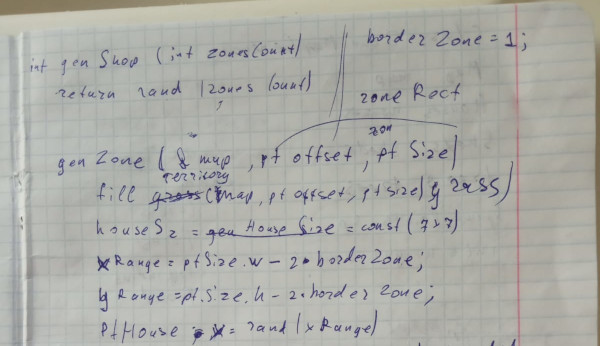 int gen Shop (int zonesCount)
return rand (zones Count)
border Zone = 1;
zone Rect
gen Zone (& map, pt offset, pt Size)
zon
territory
fill (map, pt offset, pt size) grass)
houseSz = Size = const (7x7)
xRange = ptSize.w - 2 * borderZone;
yRange = pt.Size.h - 2 * border Zone;
PtHouse x = rand (xRange)